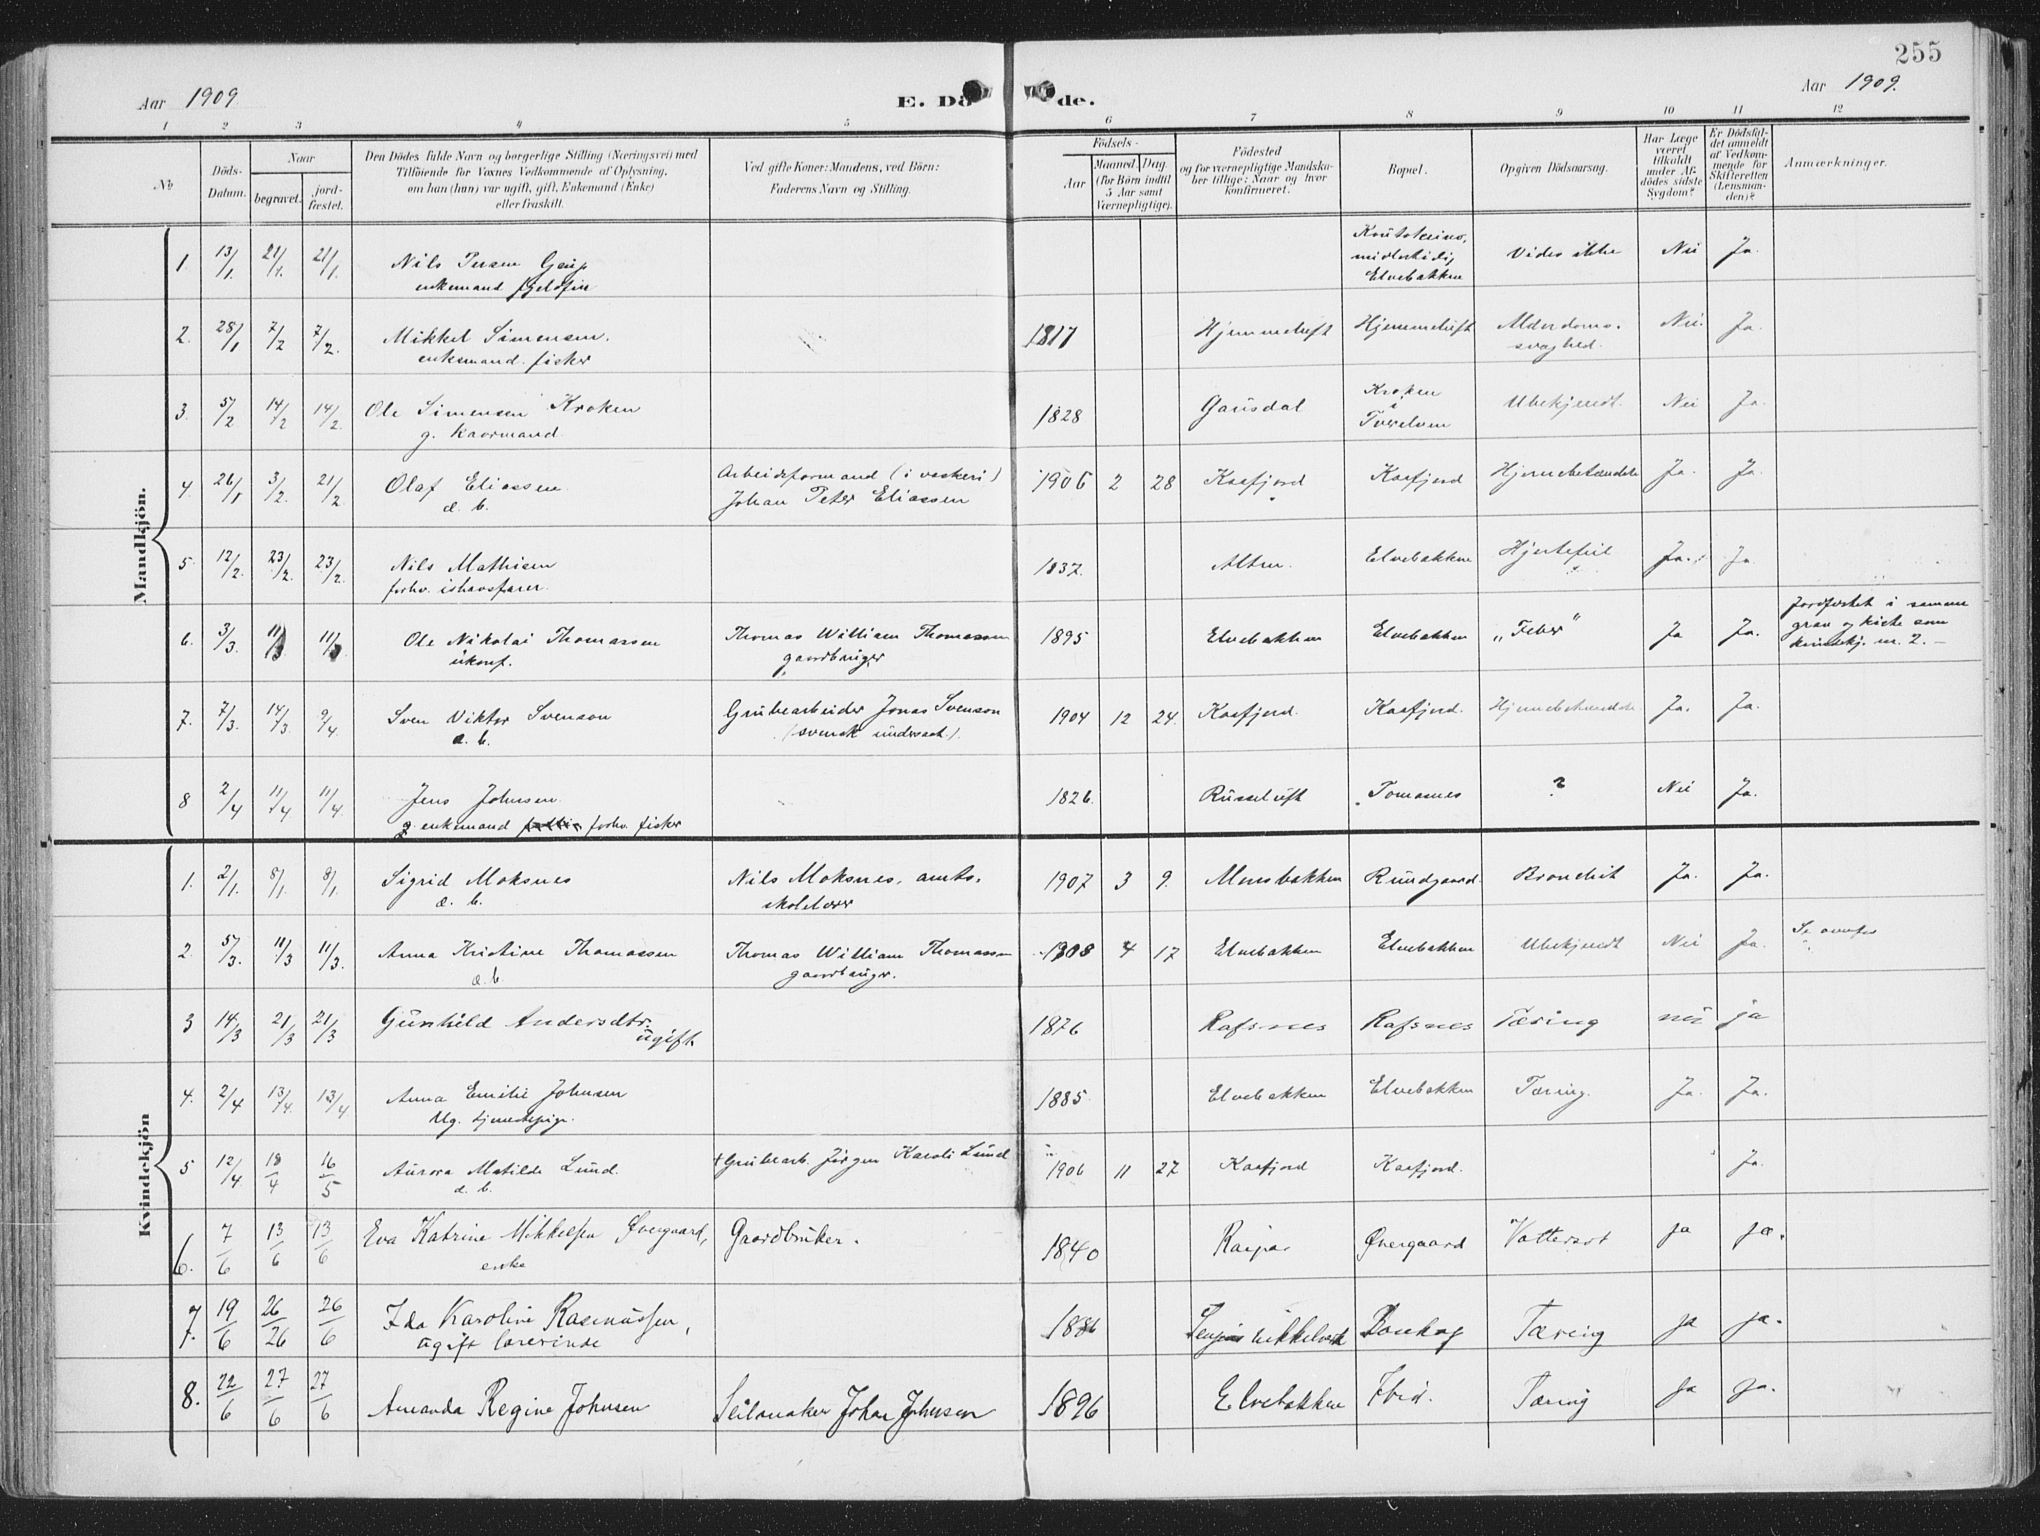 255
Aar 1909
E. Dö de.
Aar 1909.
1 2 3 4 5 6 7 8 9 10 11 12
No
Döds-Datum.
Naar
begravet.
jord-fæstet.
Den Dödes fulde Navn og borgerlige Stilling (Næringsvei) med
Tilföiende for Voxnes Vedkommende af Oplysning,
om han (hun) var ugift, gift, Enkemand (Enke)
eller fraskilt.
Ved gifte Koner: Mandens, ved Börn:
Faderens Navn og Stilling.
Födsels-
Aar
Maaned. Dag.
(for Börn indtil
5 Aar samt
Værnepligtige).
Födested
og for værnepligtige Mandska-
ber tillige: Naar og hvor
konfirmeret.
Bopæl.
Opgiven Dödsaarsag.
Har Læge
været
tilkaldt
under Af-
dödes sidste
Sygdom?
Er Dödsfal-
det anmeldt
af Vedkom-
mende for
Skifteretten
(Lensman-
den)?
Anmærkninger.
Mandkjön.
1. 13/1 21/1. 21/1. Nils Persen Gaup
enkemand fjeldfin
Koutokeino,
midlertidig
Elvebakken
Vides ikke Nei Ja.
2. 28/1 7/2 7/2. Mikkel Simensen.
enkemand. fisker
1817 Hjemmeluft Hjemmeluft Alderdoms-
svaghed. Nei. Ja.
3. 5/2 14/2 14/2. Ole Simensen Kroken
g. kaarmand.
1828 Gausdal Kroken
i
Tverelven
Ubekjendt. Nei Ja.
4. 26/1 3/2. 21/2. Olaf Eliassen.
æ. b.
Arbeidsformand (i vaskeri)
Johan Peter Eliassen
1906 2 28 Kaafjord Kaafjord Hjernebetændelse Ja. Ja.
5. 12/2. 23/2. 23/2. Nils Mathisen
forhv. ishavsfarer.
1837. Alten. Elvebakken Hjertefeil Ja. Ja.
6. 3/3. 11/3 11/3. Ole Nikolai Thomassen
ukonf.
Thomas William Thomassen
gaardbruger
1895 Elvebakken Elvebakken „Feber” Ja Ja.
Jordfæstet i samme
grav og kiste som
kvindekj. nr. 2. –
7. 7/3. 14/3. 9/4. Sven Viktor Svenson
æ. b.
Grubearbeider Jonas Svenson
(svensk undersaat).
1904 12 24. Kaafjord. Kaafjord. Hjernebetændelse Ja. Ja.
8 2/4 11/4 11/4 Jens Johnsen.
enkemand forhv. fisker
1826. Russeluft Tomasnes ? Nei Ja.
Kvindekjön
1. 2/1. 8/1. 8/1. Sigrid Moksnes
æ. b.
Nils Moksnes, amts-
skolelærer
1907 3 9. Monsbakken Rundgaard. Bronchit Ja. Ja.
2. 5/3. 11/3 11/3. Anna Kristine Thomassen
æ. b.
Thomas William Thomassen
gaardbruger.
1908 4 17 Elvebakken Elvebakken Ubekjendt Nei Ja. Se ovenfor
3 14/3 21/3 21/3 Gunhild Andersdtr.
ugift.
1876 Rafsnes Rafsnes Tæring nei ja
4. 2/4 13/4. 13/4 Anna Emilie Johnsen
Ug. tjenestepige.
1885. Elvebakken Elvebakken Tæring. Ja. Ja.
5 12/4 18/4 16/5 Aurora Matilde Lund.
æ. b.
Grubearb. Jörgen Karoli Lund
1906 11 27 Kaafjord Kaafjord. Ja.
6. 7/6 13/6 13/6 Eva Katrine Mikkelsen Øvergaard,
enke
Gaardbruker.
1840 Raipas Øvergaard Vattersot ja ja.
7. 19/6 26/26 26/6 Ida Karoline Rasmussen,
ugift lærerinde
1886 Bosekop Tæring ja ja.
8. 22/6 27/6 27/6 Amanda Regine Johnsen Seilmaker Johan Johnsen
1896 Elvebakken Ibid. Tæring ja ja.